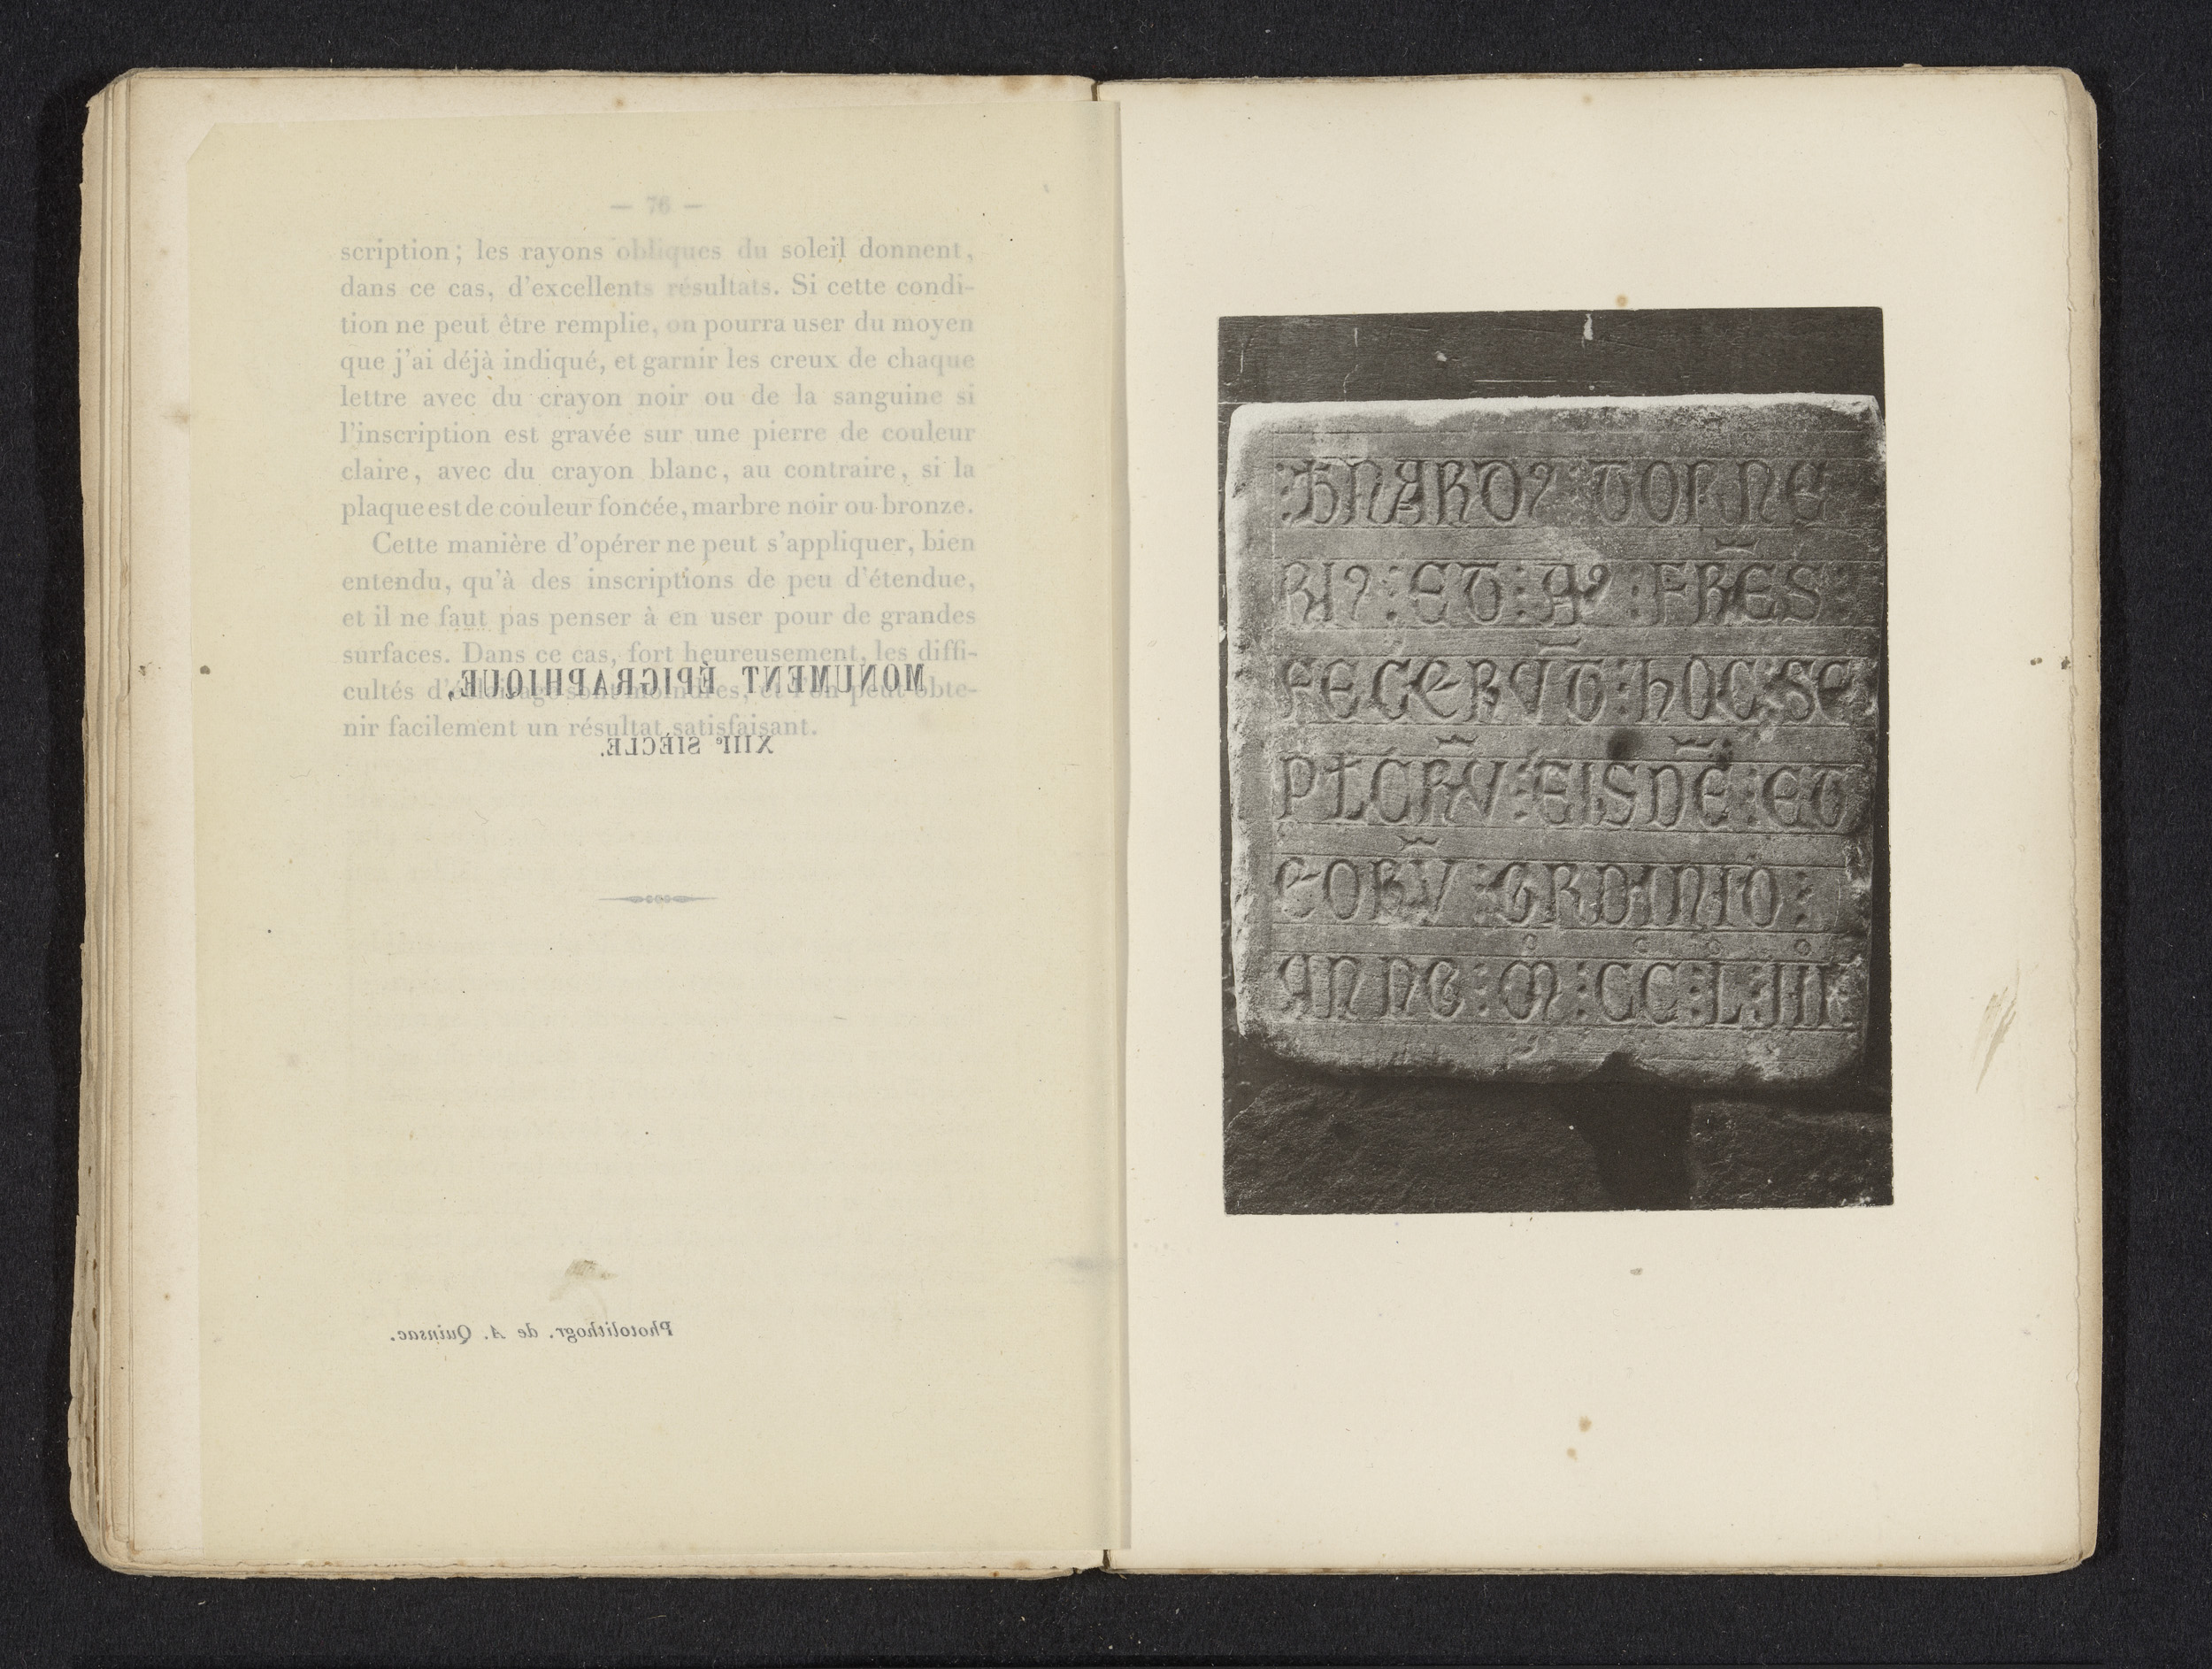 — 76 —
scription; les rayons obliques du soleil donnent,
dans ce cas, d'excellents résultats. Si cette condi-
tion ne peut être remplie, on pourra user du moyen
que j'ai déjà indiqué, et garnir les creux de chaque
lettre avec du crayon noir ou de la sanguine si
l'inscription est gravée sur une pierre de couleur
claire, avec du crayon blanc, au contraire, si la
plaque est de couleur foncée, marbre noir ou bronze.
Cette manière d'opérer ne peut s'appliquer, bien
entendu, qu'à des inscriptions de peu d'étendue,
et il ne faut pas penser à en user pour de grandes
surfaces. Dans ce cas, fort heureusement, les diffi-
cultés d'éclairage sont moindres, et l'on peut obte-
nir facilement un résultat satisfaisant.
MONUMENT ÉPIGRAPHIQUE,
XIIIe SIÈCLE.
Photolithogr. de A. Quinsac.
BNARDꝰ TORNE
RIꝰ : ET : Aꝰ : FRĒS
FECERVT̄ : hOC : SE
PLCRV̄ : EISDĒ : ET
EORV̄ : GRDINIO :
ANNO : M̊ : CC̊ : L̊ : III̊